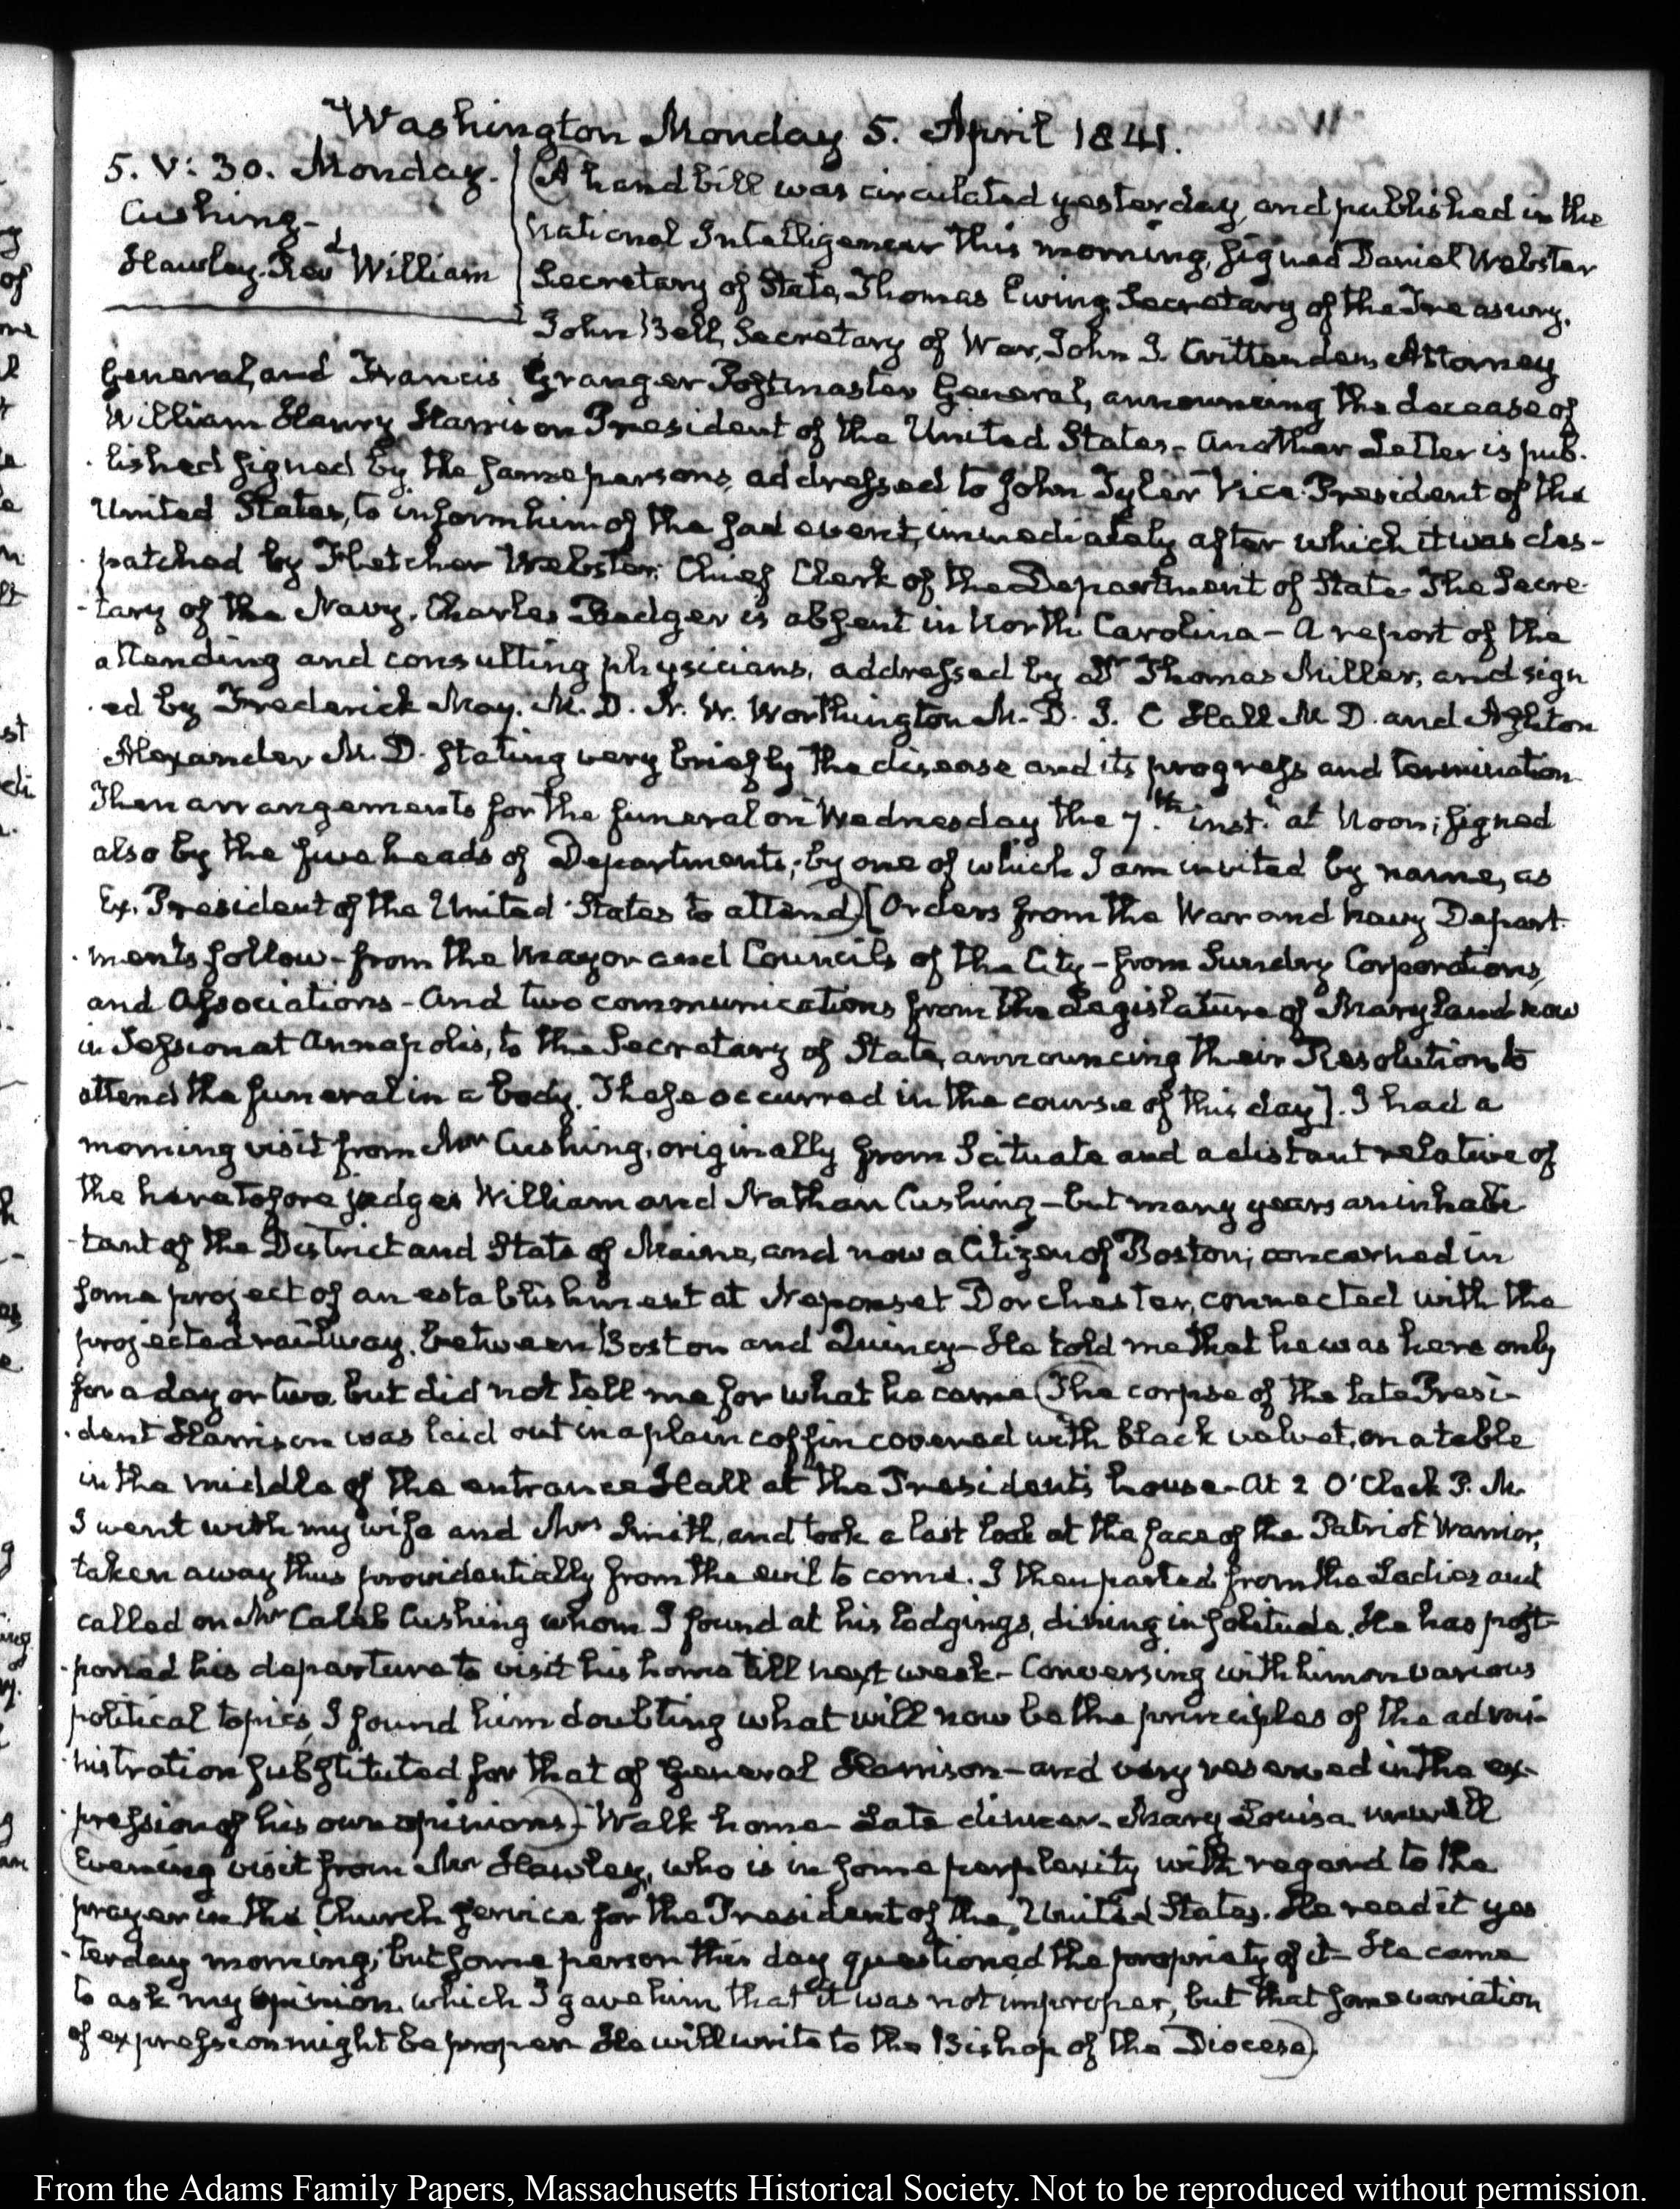 Washington Monday 5. April 1841.
5. V: 30. Monday.
Cushing-
Hawley. Revd William
A hand bill was circulated yesterday, and published in the
National Intelligencer this morning, signed Daniel Webster
Secretary of State, Thomas Ewing Secretary of the Treasury,
John Bell, Secretary of War, John J. Crittenden Attorney
General, and Francis Granger Postmaster General, announcing the decease of
William Henry Harrison President of the United States- Another Letter is pub-
lished signed by the same persons, addressed to John Tyler Vice-President of the
United States, to inform him of the sad event, immediately after which it was des-
patched by Fletcher Webster, Chief Clerk of the Department of State- The Secre-
-tary of the Navy, Charles Badger is absent in North Carolina- A report of the
attending and consulting physicians, addressed by Dr Thomas Miller, and sign
-ed by Frederick May. M. D. N. W. Worthington M. D. J. C Hall M D. and Ashton
Alexander M. D. stating very briefly the disease and its progress and termination
Then arrangements for the funeral on Wednesday the 7.th inst.t at Noon; signed
also by the five heads of Departments; by one of which I am invited by name, as
Ex. President of the United States to attend) [Orders from the War and Navy Depart-
-ments follow- from the Mayor and Councils of the City- from Sundry Corporations,
and Associations- And two communications from the Legislature of Maryland now
in Session at Annapolis, to the Secretary of State, announcing their Resolution to
attend the funeral in a body. These occurred in the course of this day]. I had a
morning visit from Mr Cushing, originally from Scituate and a distant relative of
the heretofore judges William and Nathan Cushing- but many years an inhabi
-tant of the District and State of Maine, and now a Citizen of Boston; concerned in
some project of an establishment at Neponset Dorchester, connected with the
projected railway, between Boston and Quincy- He told me that he was here only
for a day or two but did not tell me for what he came (The corpse of the late Presi-
-dent Harrison was laid out in a plain coffin covered with black velvet, on a table
in the middle of the entrance Hall at the President's house- At 2 O'Clock P. M.
I went with my wife and Mrs Smith, and took a last look at the face of the Patriot Warrior,
taken away thus providentially from the evil to come. I then parted from the Ladies and
called on Mr Caleb Cushing whom I found at his lodgings, dining in solitude. He has post-
-poned his departure to visit his home till next week- Conversing with him on various
political topics, I found him doubting what will now be the principles of the admi-
-nistration substituted for that of General Harrison- and very reserved in the ex-
-pression of his own opinions)- Walk home- Late dinner- Mary Louisa unwell
(Evening visit from Mr Hawley, who is in some perplexity with regard to the
prayer in the Church service for the President of the United States. He read it yes
-terday morning; but some person this day questioned the propriety of it- He came
to ask my opinion which I gave him that it was not improper, but that some variation
of expression might be proper He will write to the Bishop of the Diocese)
From the Adams Family Papers, Massachusetts Historical Society. Not to be reproduced without permission.